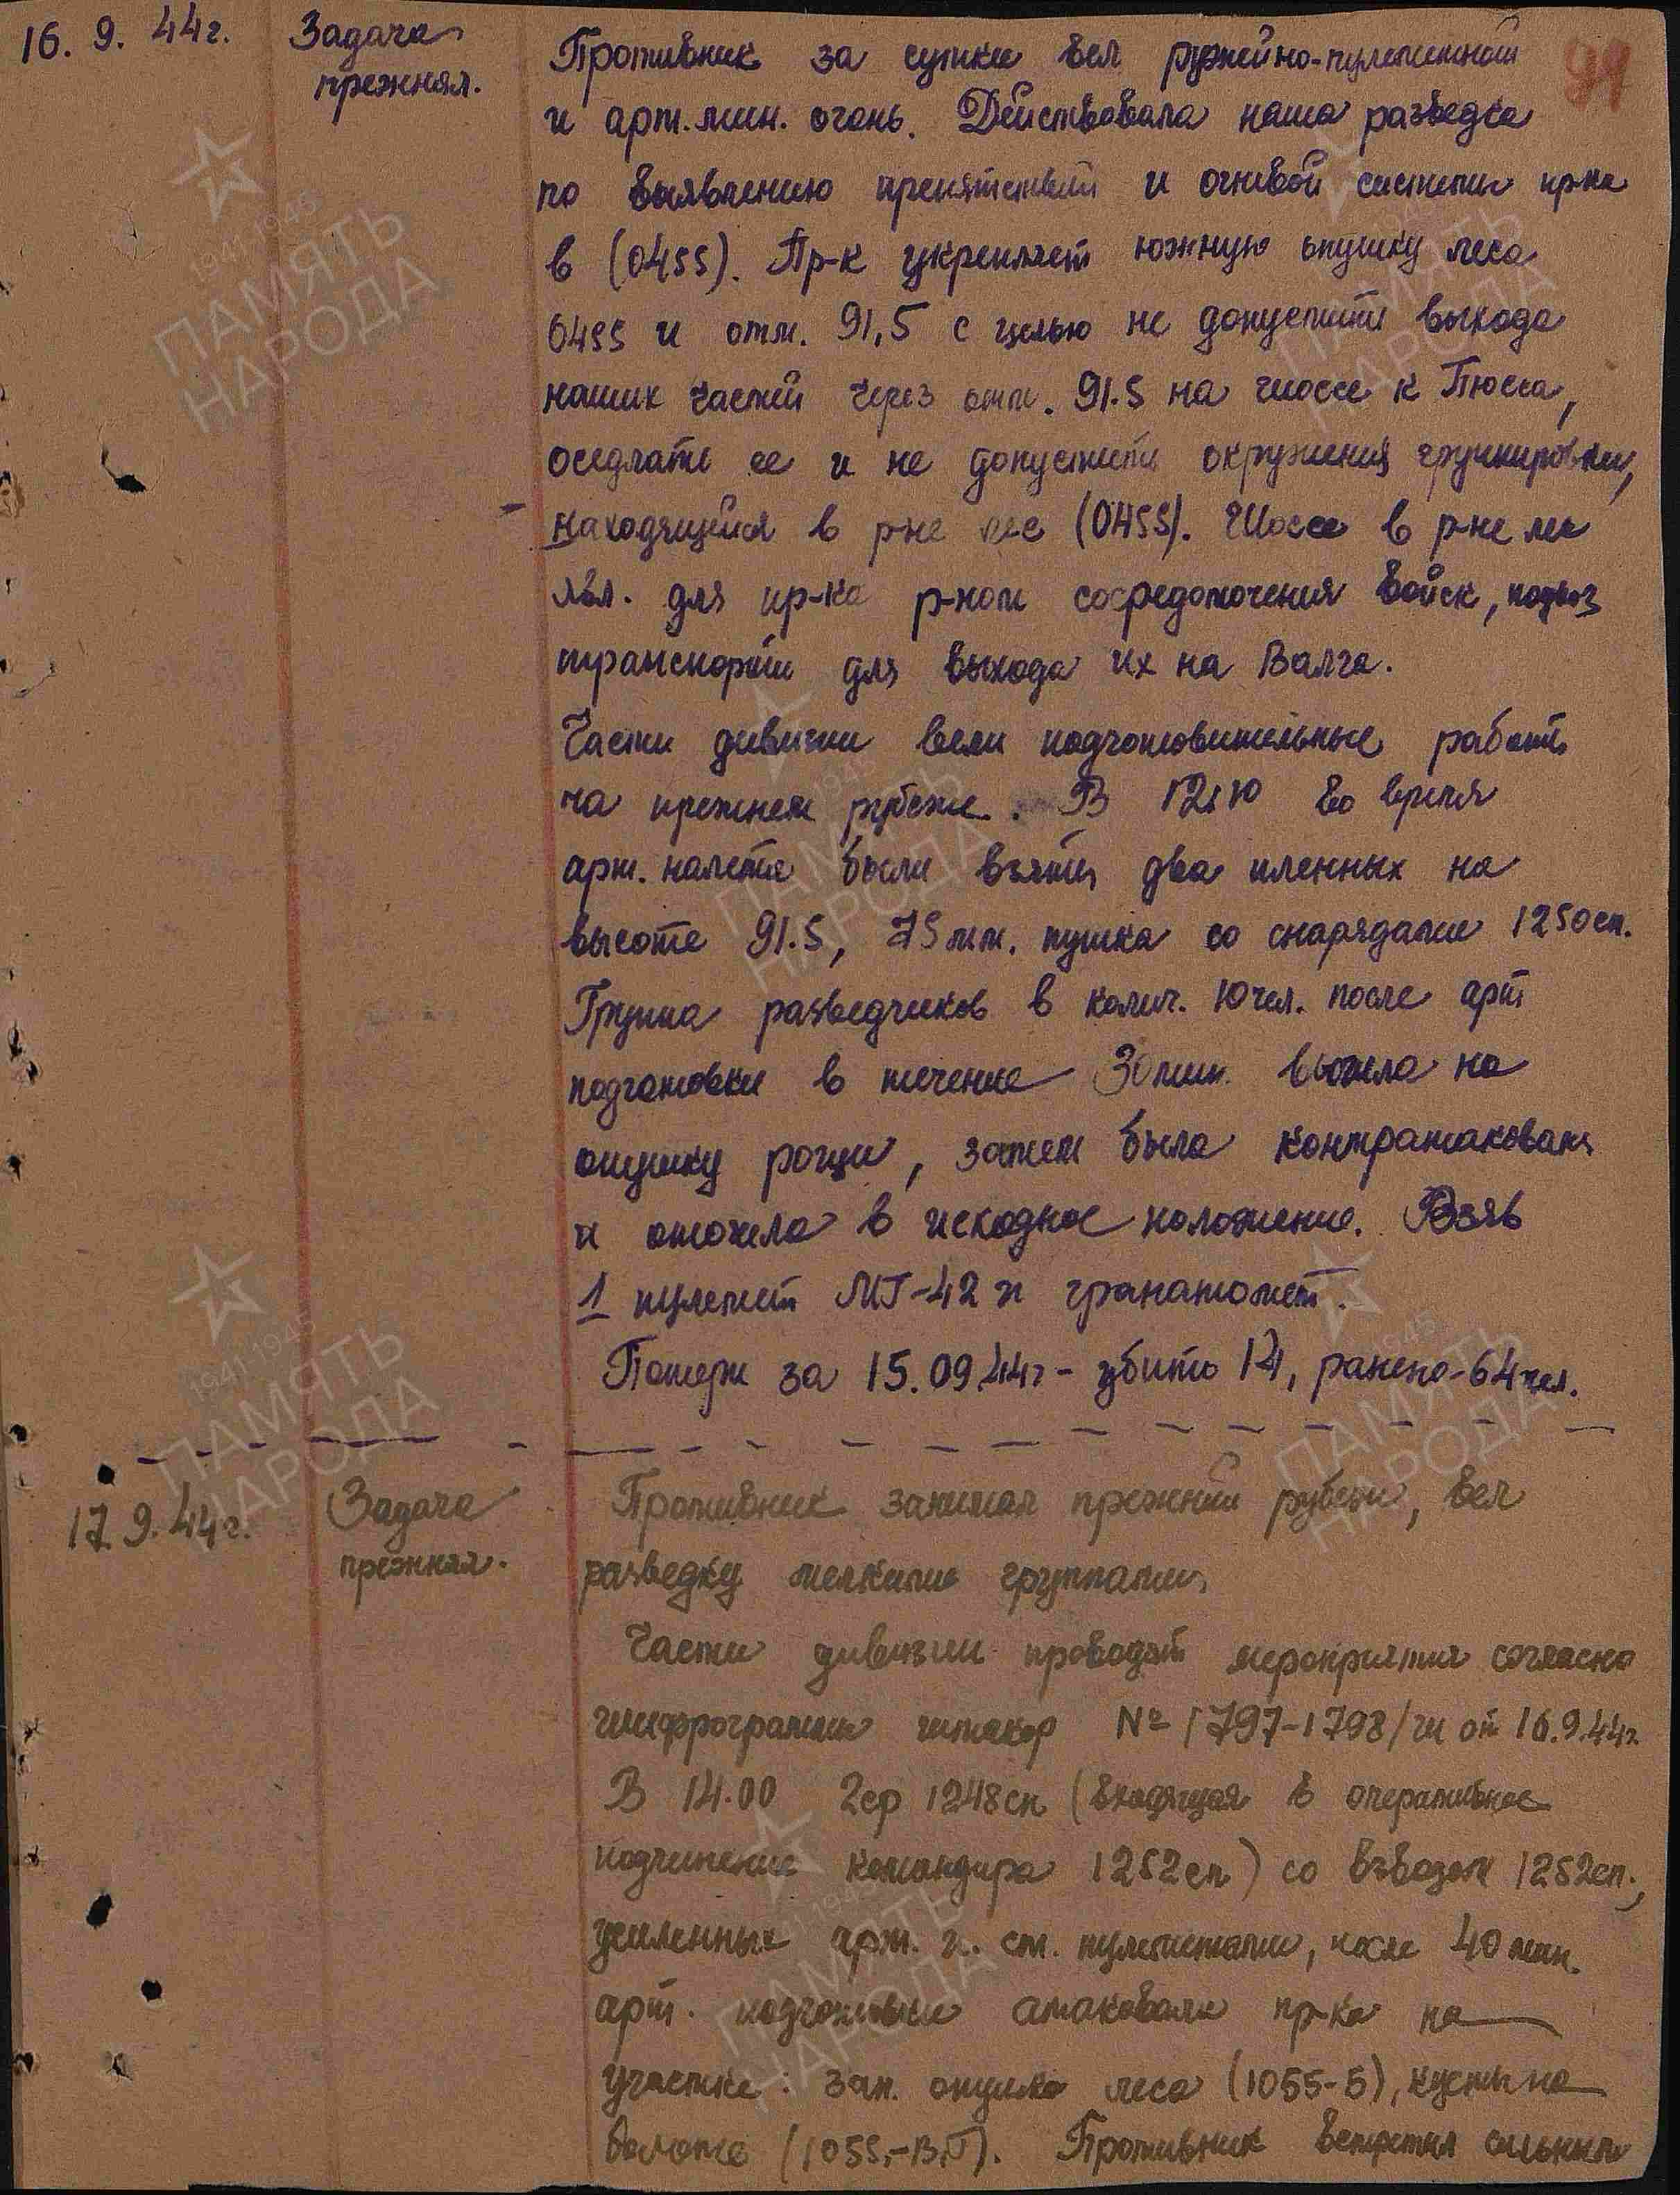 16. 9. 44г.
Задача
прежняя.
91
Противник за сутки вел ружейно-пулеметный
и арт.мин. огонь. Действовала наша разведка
по выявлению препятствий и огневой системы пр-ка
в (0455). Пр-к укрепляет южную опушку леса
0455 и отм. 91,5 с целью не допустить выхода
наших частей через отм. 91.5 на шоссе к Пюсса,
оседлать ее и не допустить окружения группировки,
находящейся в р-не лес (0455). Шоссе в р-не лес
явл. для пр-ка р-ном сосредоточения войск, подвоз
транспорта для выхода их на Валга.
Части дивизии вели подготовительные работы
на прежнем рубеже. В 12.10 во время
арт. налета были взяты два пленных на
высоте 91.5, 75 мм. пушка со снарядами 1250сп.
Группа разведчиков в колич. 10 чел. после арт
подготовки в течение 30 мин. вышла на
опушку рощи, затем была контратакована
и отошла в исходное положение. Взяв
1 пулемет МГ-42 и гранатомет.
Потери за 15.09.44г - убито 14, ранено-64 чел.
17. 9. 44г.
Задача
прежняя.
Противник занимал прежний рубеж, вел
разведку мелкими группами.
Части дивизии проводят мероприятия согласно
шифрограммы штакор № 1797-1798/ш от 16.9.44г.
В 14.00 2ср 1248сп (входящая в оперативное
подчинение командира 1252сп) со взводом 1252сп.,
усиленных арт. и ст. пулеметами, после 40 мин.
арт. подготовки атаковала пр-ка на
участке: зап. опушка леса (1055-5), кусты на
болоте (1055-В,Г). Противник встретил сильным
ПАМЯТЬ
НАРОДА
1941-1945